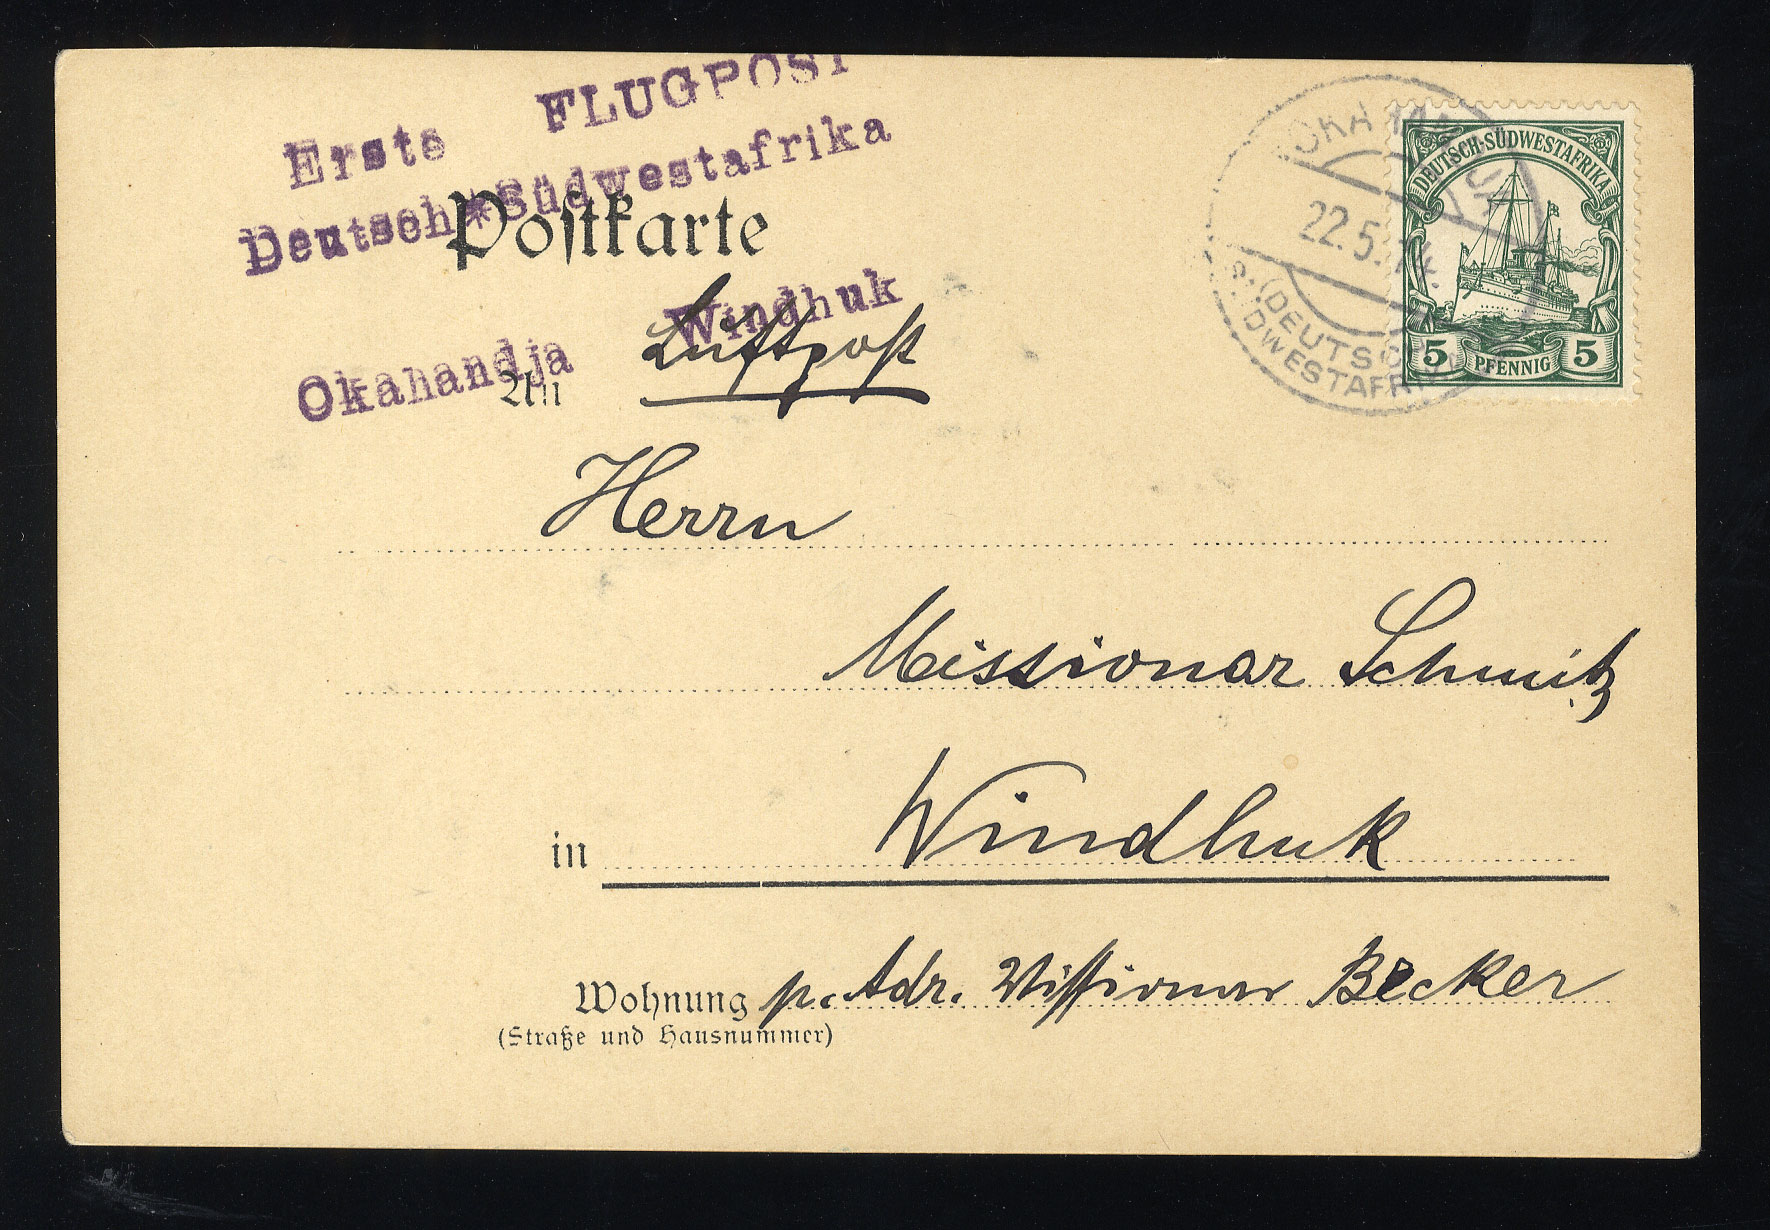 Erste FLUGPOST
Deutsch*Südwestafrika
Okahandja Windhuk
Postkarte
Luftpost
An
22.5.
(DEUTSCH
SÜDWESTAFRIKA
DEUTSCH-SÜDWESTAFRIKA
5 PFENNIG 5
Herrn
Missionar Schmitz
in Windhuk
Wohnung p. Adr. Missionar Becker
(Straße und Hausnummer)